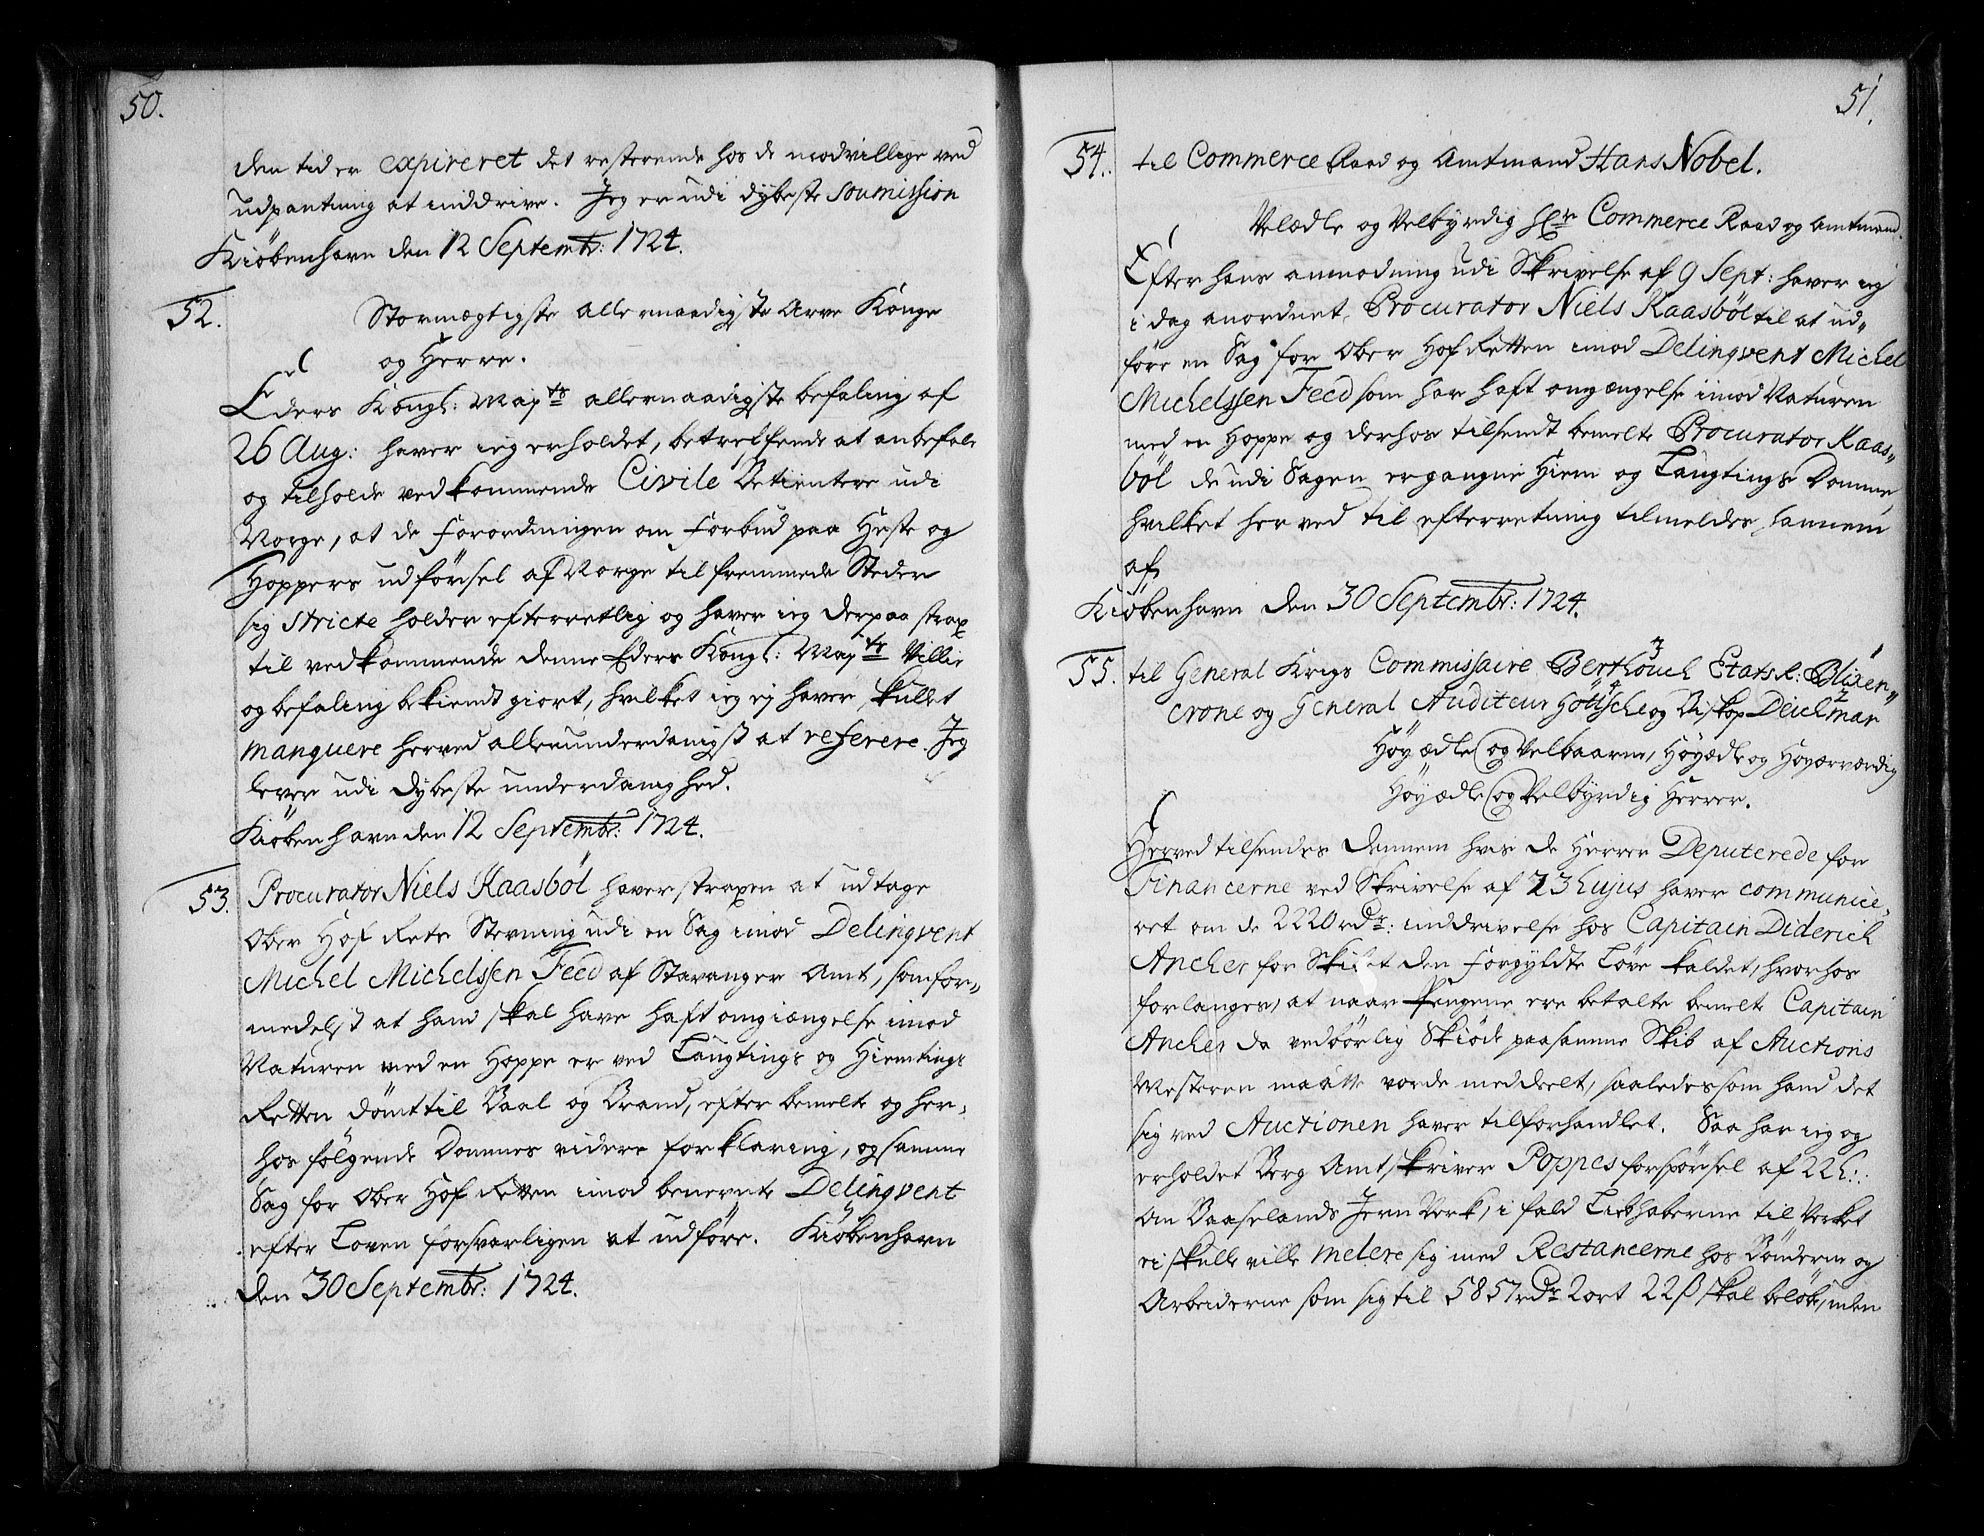 50.
den tid er expireret det resterende hos de modvillige ved
udpantning at inddrive. Jeg er udi dybeste Soumission
Kiöbenhavn den 12 Septembr: 1724.
52.
Stormægtigste allernaadigste Arve Konge
og Herre.
Eders Kongl: Mayts allernaadigste befaling af
26 Aug: haver ieg erholdet, betreffende at anbefale
og tilholde vedkommende Civile Betientere udi
Norge, at de Forordningen om Forbud paa Heste og
Hoppers udförsel af Norge til fremmede Steder
sig stricte holder efterretlig og haver ieg derpaa strax
til vedkommende denne Eders Kongl: Mayts Villie
og befaling bekiendt giort, hvilket ieg ej haver skullet
manquere herved allerunderdanigst at referere. Jeg
lever udi dybeste underdanighed.
Kiöbenhavn den 12 Septembr: 1724.
53.
Procurator Niels Kaasböl haver straxen at udtage
Ober Hof Rets Stevning udi en Sag imod Delinqvent
Michel Michelssen Feed af Stavanger Amt, som for-
medelst at hand skal have haft omgiængelse imod
Naturen med en Hoppe er ved Laugtings og Hiemtings
Retten dömt til Baal og Brand, efter bemelte og her-
hos fölgende Dommes videre forklaring, og samme
Sag for Ober Hof Retten imod benevnte Delinqvent
efter Loven forsvarligen at udföre. Kiöbenhavn
den 30 Septembr: 1724.
51.
54.
til Commerce Raad og Amtmand Hans Nobel.
Velædle og Velbyrdig Hr Commerce Raad og Amtmand.
Efter hans anmodning udi Skrivelse af 9 Sept: haver ieg
i dag anordnet Procurator Niels Kaasböl til at ud-
före en Sag for Ober Hof Retten imod Delinqvent Michel
Michelssen Feed som har haft omgængelse imod Naturen
med en Hoppe og derhos tilsendt bemelte Procurator Kaas-
böl de udi Sagen ergangne Hiem og Laugtings Domme,
hvilket her ved til efterretning tilmeldes hannem
af
Kiöbenhavn den 30 Septembr: 1724.
55.
til General Krigs Commissaire Berthouch Etats R: Blixen-
crone og General Auditeur Göttsche og Biskop Deichman
Höyædle og Velbaarne, Höyædle og Höyærværdig
Höyædle og Velbyrdig Herrer.
Herved tilsendes dennem hvis de Herrer Deputerede for
Financerne ved Skrivelse af 23 hujus haver communice-
ret om de 2220 rdr: inddrivelse hos Capitain Diderich
Ancher for Skibet den Forgyldte Löve kaldet, hvorhos
forlanges, at naar Pengene ere betalte bemelte Capitain
Ancher da vedbörlig Skiöde paa samme Skib af Auctions
Mesteren maatte vorde meddeelt, saaledes som hand det
sig ved Auctionen haver tilforhandlet. Saa har ieg og
erholdet Berg Amtskriver Poppes forspörsel af 22 h:
om Baaselands Jern Verk, i fald Liebhaberne til Verket
ei skulle ville melere sig med Restancerne hos Bönderne og
Arbeiderne som sig til 5857 rdr 2 ort 22 ß skal belöbe, uden